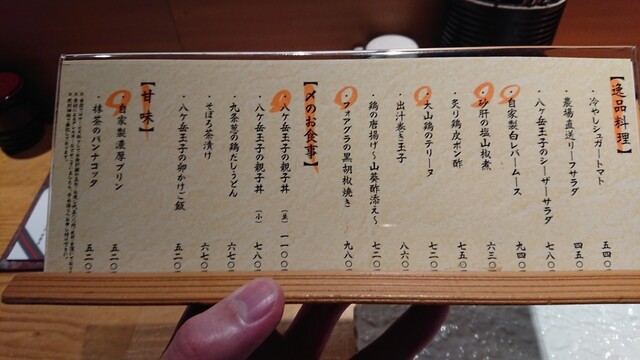 【逸品料理】
・冷やしシュガートマト 五四〇
・農場直送リーフサラダ 四五〇
・八ヶ岳王子のシーザーサラダ 七八〇
・自家製白レバームース 九四〇
・砂肝の塩山椒煮 六三〇
・炙り鶏皮ポン酢 七五〇
・大山鶏のテリーヌ 七二〇
・出汁巻き玉子 八六〇
・鶏の唐揚げ～山葵酢添え～ 七二〇
・フォアグラの黒胡椒焼き 九八〇
【〆のお食事】
・八ヶ岳王子の親子丼 一一〇〇
・八ヶ岳王子の親子丼（小） 七八〇
・九条葱の鶏だしうどん 六七〇
・そぼろ茶漬け 六七〇
・八ヶ岳王子の卵かけご飯 五二〇
【甘味】
・自家製濃厚プリン 五二〇
・抹茶のパンナコッタ 五二〇